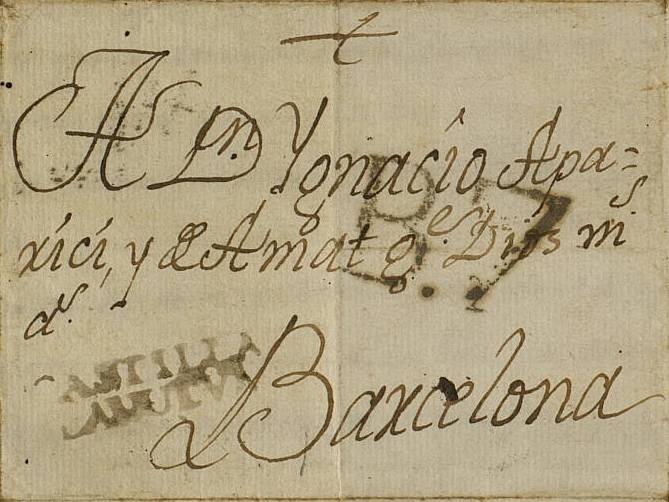 A Dn Ygnacio Apa=
rici, y de Amat ge. Dios ms
as.
B.7
CASTILLA
LA NUEVA
Barcelona